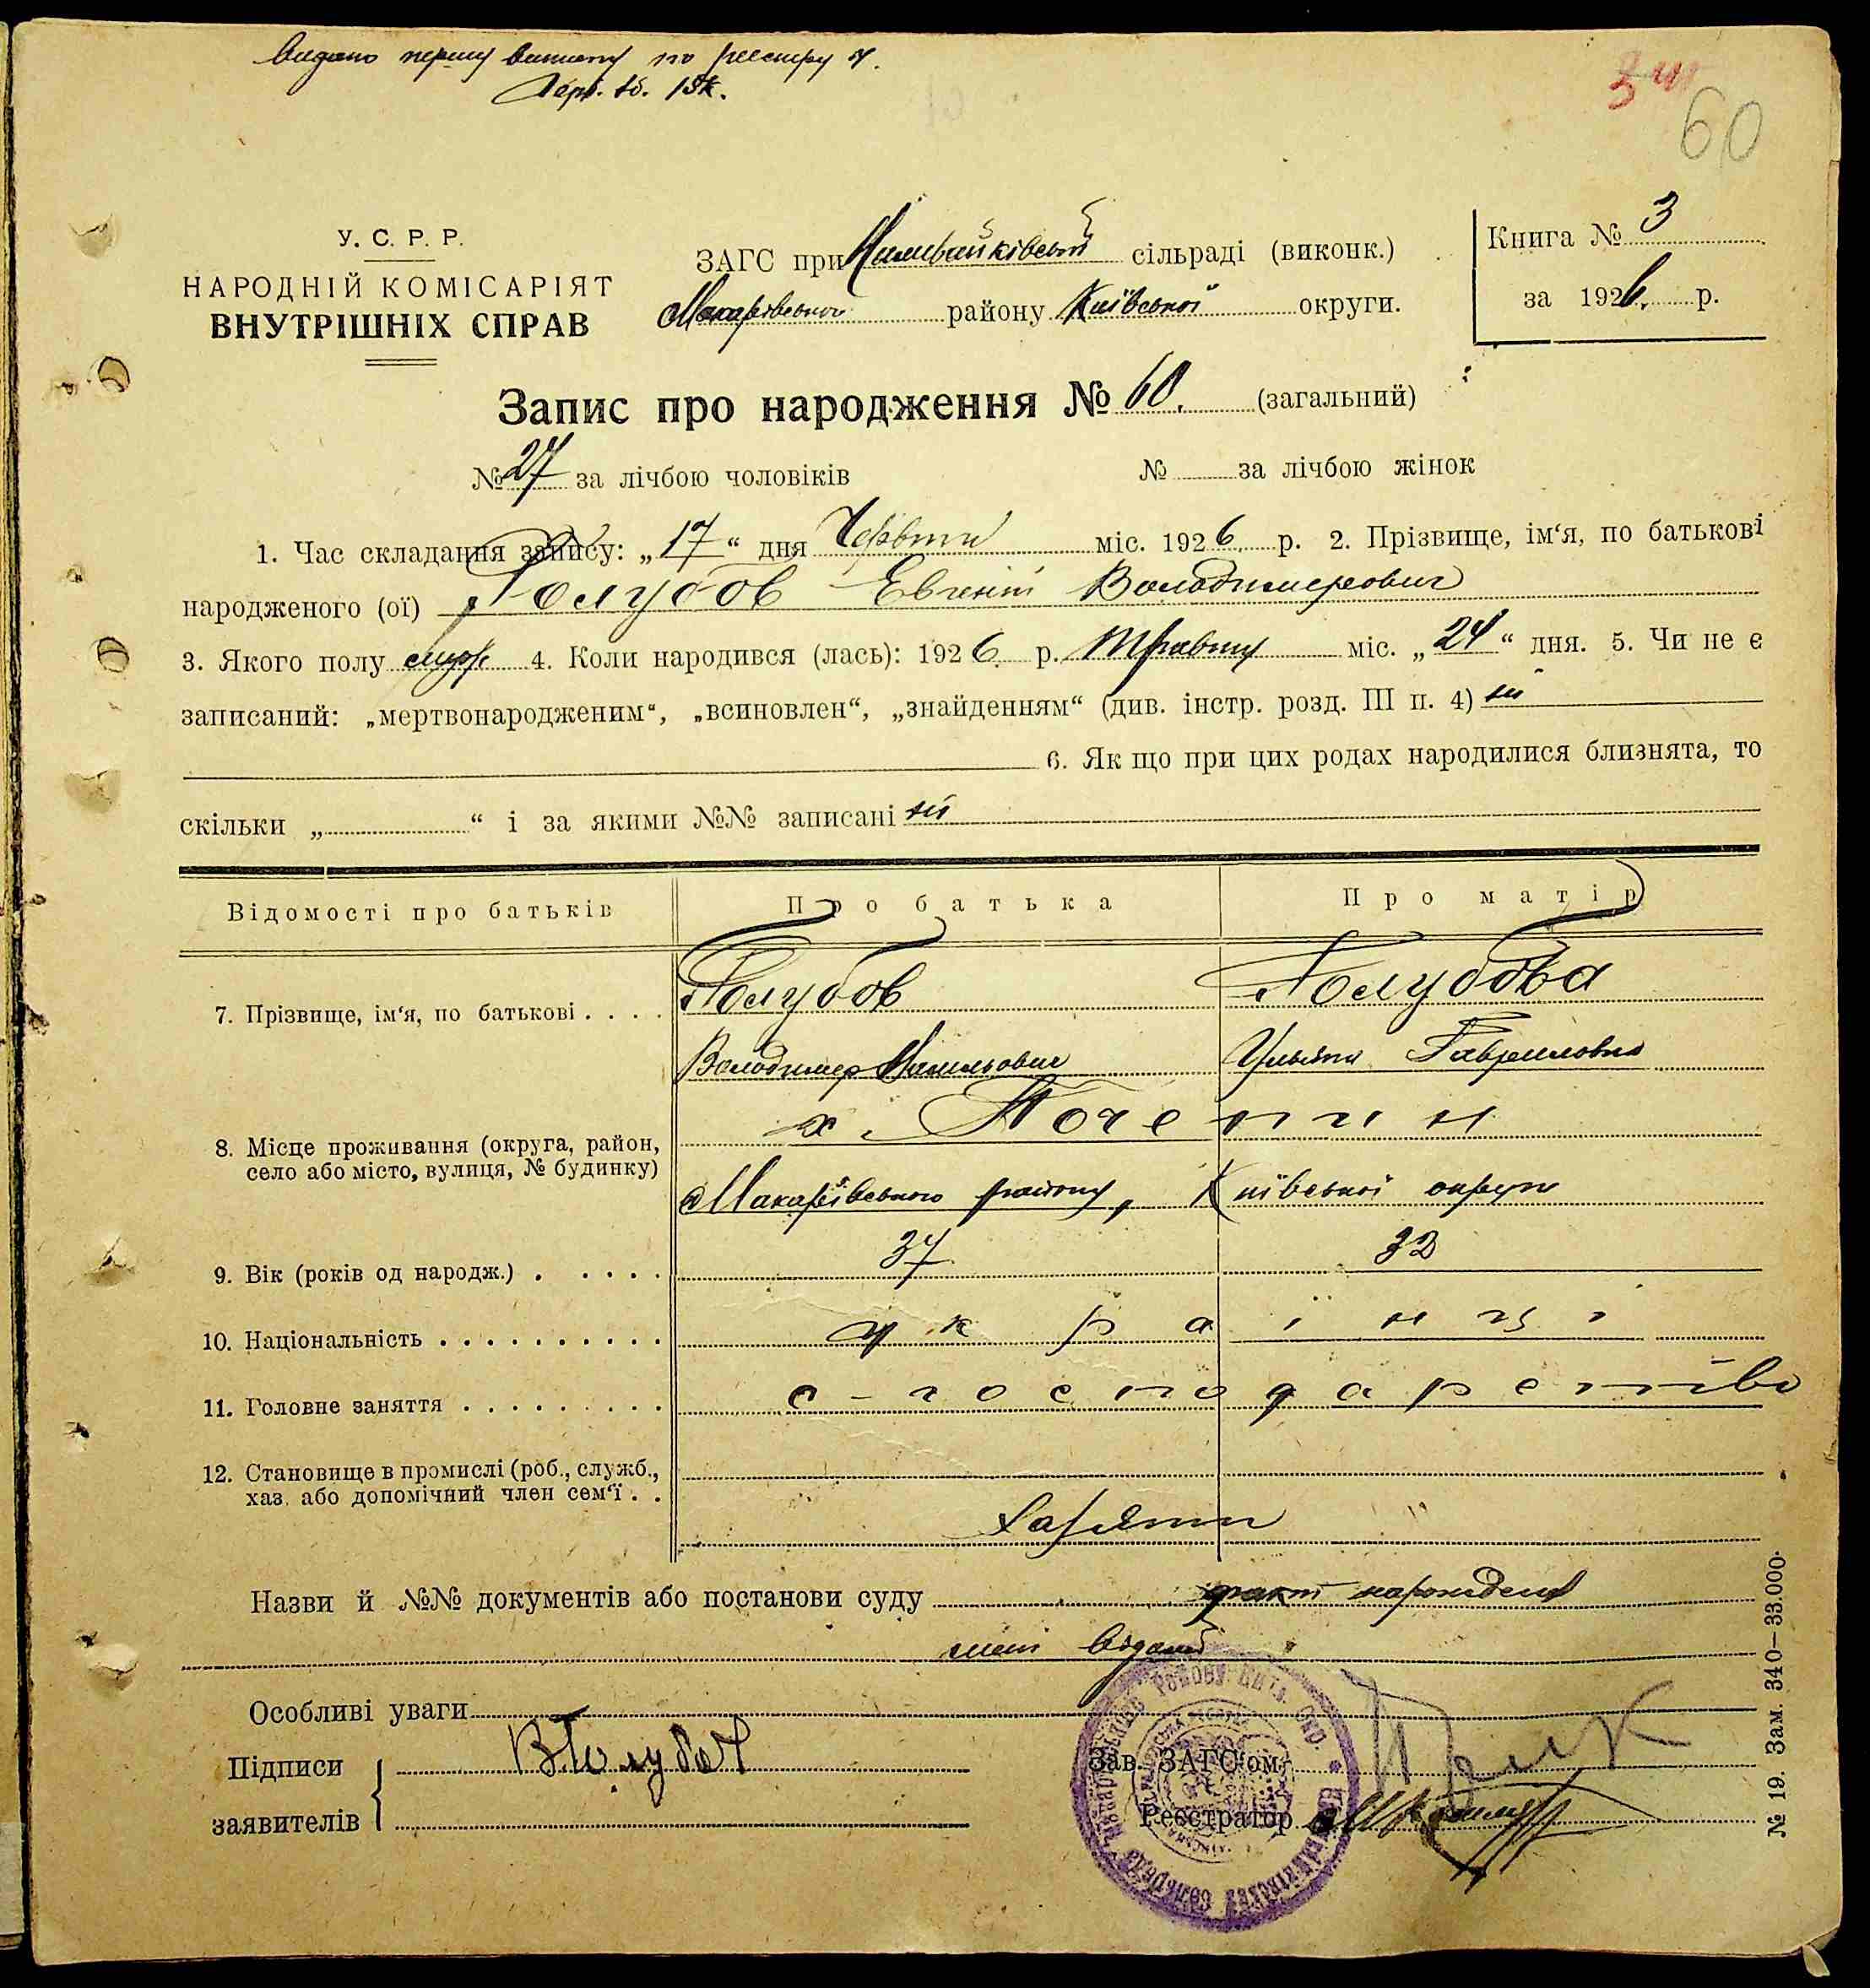 Видано першу виписку по реєстру
60
У. С. Р. Р.
НАРОДНІЙ КОМІСАРІЯТ
ВНУТРІШНІХ СПРАВ
ЗАГС при Наливайківській сільраді (виконк.)
Макарівського району Київської округи.
Книга № 3
за 1926. р.
Запис про народження № 60. (загальний)
№ 27 за лічбою чоловіків № за лічбою жінок
1. Час складання запису: „17“ дня Червня міс. 1926. р. 2. Прізвище, ім‘я, по батькові
народженого (ої) Голубов Евгеній Володимерович
3. Якого полу муж. 4. Коли народився (лась): 1926. р. Травня міс. „24“ дня. 5. Чи не є
записаний: „мертвонародженим“, „всиновлен“, „знайденням“ (див. інстр. розд. III п. 4) ні
6. Як що при цих родах народилися близнята, то
скільки „ “ і за якими №№ записані ні
Відомості про батьків Про батька Про матір
7. Прізвище, ім‘я, по батькові . . . . Голубов Голубова
Володимер Уляна Гавриловна
8. Місце проживання (округа, район,
село або місто, вулиця, № будинку)
х.
Макарівського району, Київської округи
9. Вік (років од народж.) . . . . . 37 32
10. Національність . . . . . . . . . . українці
11. Головне заняття . . . . . . . . . с-господарство
12. Становище в промислі (роб., служб.,
хаз. або допомічний член сем‘ї . .
Назви й №№ документів або постанови суду факт народження
мені відомий
Особливі уваги
Підписи
заявителів
В. Голубов
Зав. ЗАГС‘ом
Реєстратор
№ 19. Зам. 340—33.000.